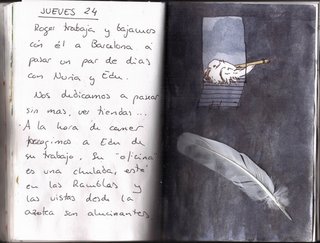 JUEVES 24
Roger trabaja y bajamos
con él a Barcelona a
pasar un par de días
con Nuria y Edu.
Nos dedicamos a pasear
sin más, ver tiendas...
A la hora de comer
recogimos a Edu de
su trabajo. Su "oficina"
es una chulada, está
en las Ramblas y
las vistas desde la
azotea son alucinantes.